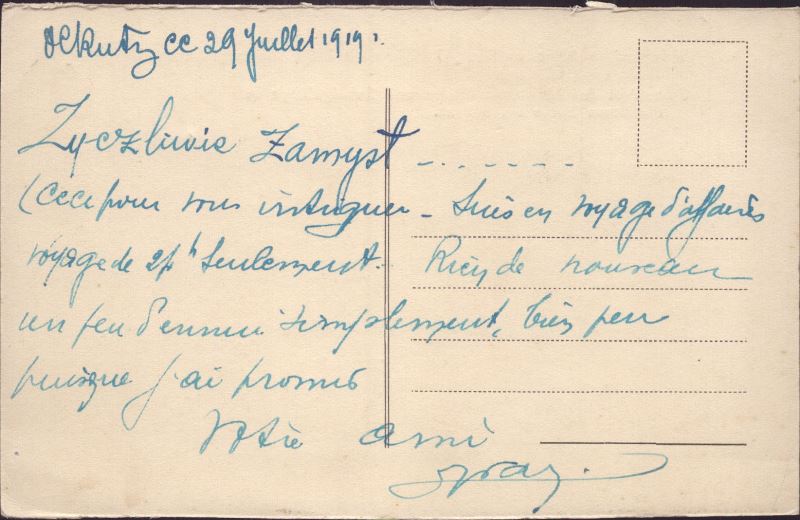 Olkutz ce 29 Juillet 1919.
Zyczliwie Zamyst -------
(Ceci pour vous intriguer - Suis en voyage d'affaires
voyage de 24h seulement. Rien de nouveau
un peu d'ennui simplement, bien peu
puisque j'ai promis
Votre ami